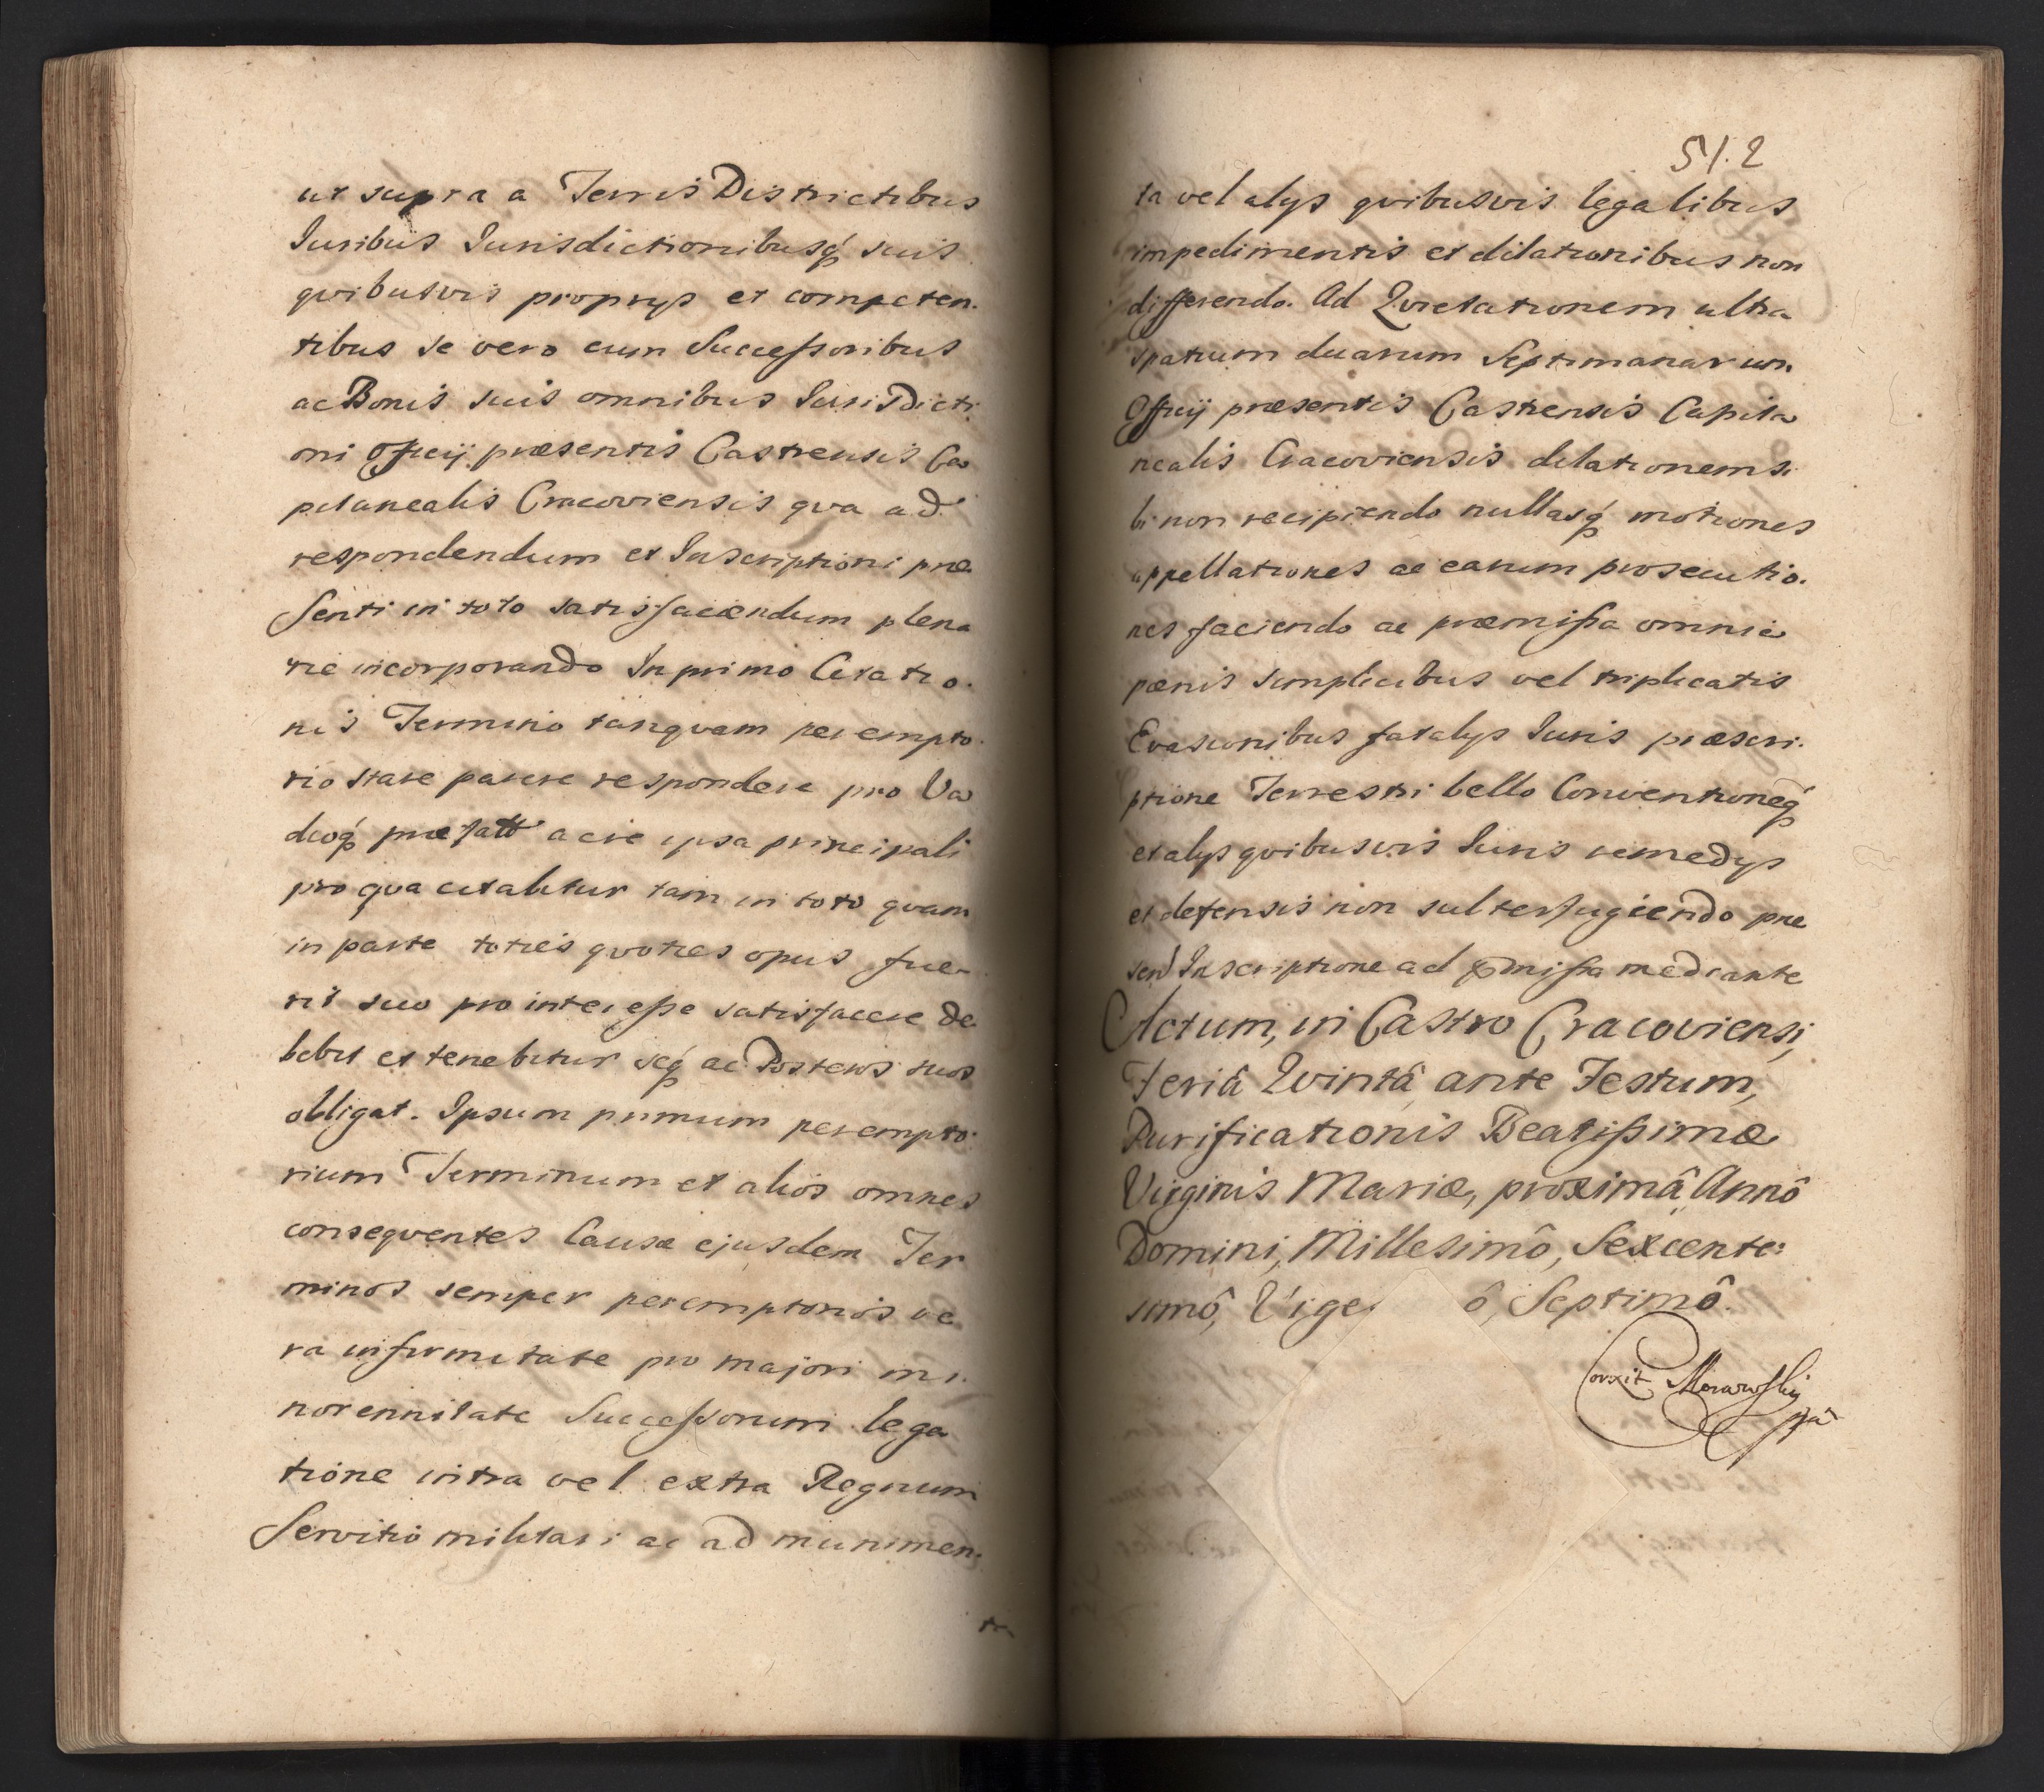 ut supra a Terris Districtibus
Iuribus Iurisdictionibusq́ suis
qvibusvis proprys et competen-
tibus se vero cum Successoribus
ac Bonis suis omnibus Iurisdicti
oni Officij præsentis Castrensis Ca
pitanealis Cracoviensis qva ad
respondendum et Inscriptioni præ
senti in toto satisfaciendum plena
rie incorporando In primo Citatio-
nis Termino tanqvam perempto-
rio stare parere respondere pro Va
dioq́ præfatt ac re ipsa principali
pro qva citabitur tam in toto qvam
in parte toties qvoties opus fue-
rit suo pro interesse satisfacere de
bebit et tenebitur seq́ ac Posteros suos
obligat. Ipsum primum perempto-
rium Terminum et alios omnes
conseqventes Causæ ejusdem Ter
minos semper peremptorios ve
ra infirmitate pro majori mi-
norennitate Successorum lega
tione intra vel extra Regnum
Servitio militari ac ad munimen-
ta
512
ta vel alys qvibusvis legalibus
impedimentis et dilationibus non
differendo. Ad Qvietationem ultra
spatium duarum Septimanarum
Officij præsentis Castrensis Capita
nealis Cracoviensis dilationem si
bi non recipiendo nullasq́ motiones
appellationes ac earum prosecutio-
nes faciendo ac præmissa omnia
pænis simplicibus vel triplicatis
Evasionibus fatalys Iuris præscri-
ptione Terrestri bello Conventioneq́
et alys qvibusvis Iuris remedys
et defensis non subterfugiendo præ
sen Inscriptione ad præmissa mediante
Actum, in Castro Cracoviensi,
Feriâ Qvintâ ante Festum,
Purificationis Beatissimæ
Virginis Mariæ, proximâ Annô
Domini, Millesimô, Sexcente-
simô, Vige ô, Septimô.
Corxit Morawskij